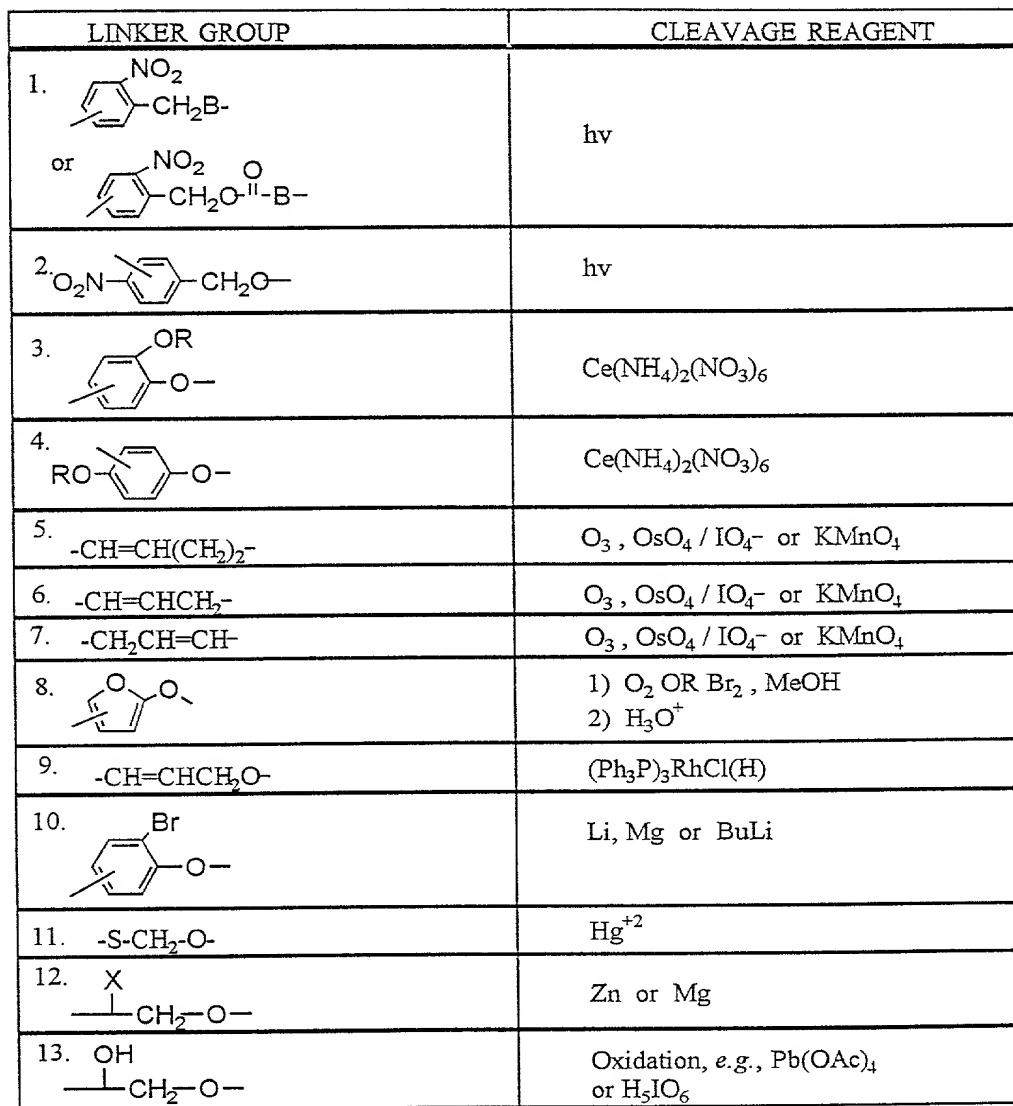 LINKER GROUP CLEAVAGE REAGENT
1. NO₂
CH₂B-
hν
or NO₂ O
CH₂O B-
2. O₂N CH₂O hν
3. OR
O Ce(NH₄)₂(NO₃)₆
4. RO O Ce(NH₄)₂(NO₃)₆
5. -CH=CH(CH₂)₂- O₃ , OsO₄ / IO₄⁻ or KMnO₄
6. -CH=CHCH₂- O₃ , OsO₄ / IO₄⁻ or KMnO₄
7. -CH₂CH=CH- O₃ , OsO₄ / IO₄⁻ or KMnO₄
8. O O 1) O₂ OR Br₂ , MeOH
2) H₃O⁺
9. -CH=CHCH₂O- (Ph₃P)₃RhCl(H)
10. Br
O Li, Mg or BuLi
11. -S-CH₂-O- Hg⁺²
12. X
CH₂-O Zn or Mg
13. OH Oxidation, e.g., Pb(OAc)₄
CH₂-O or H₅IO₆